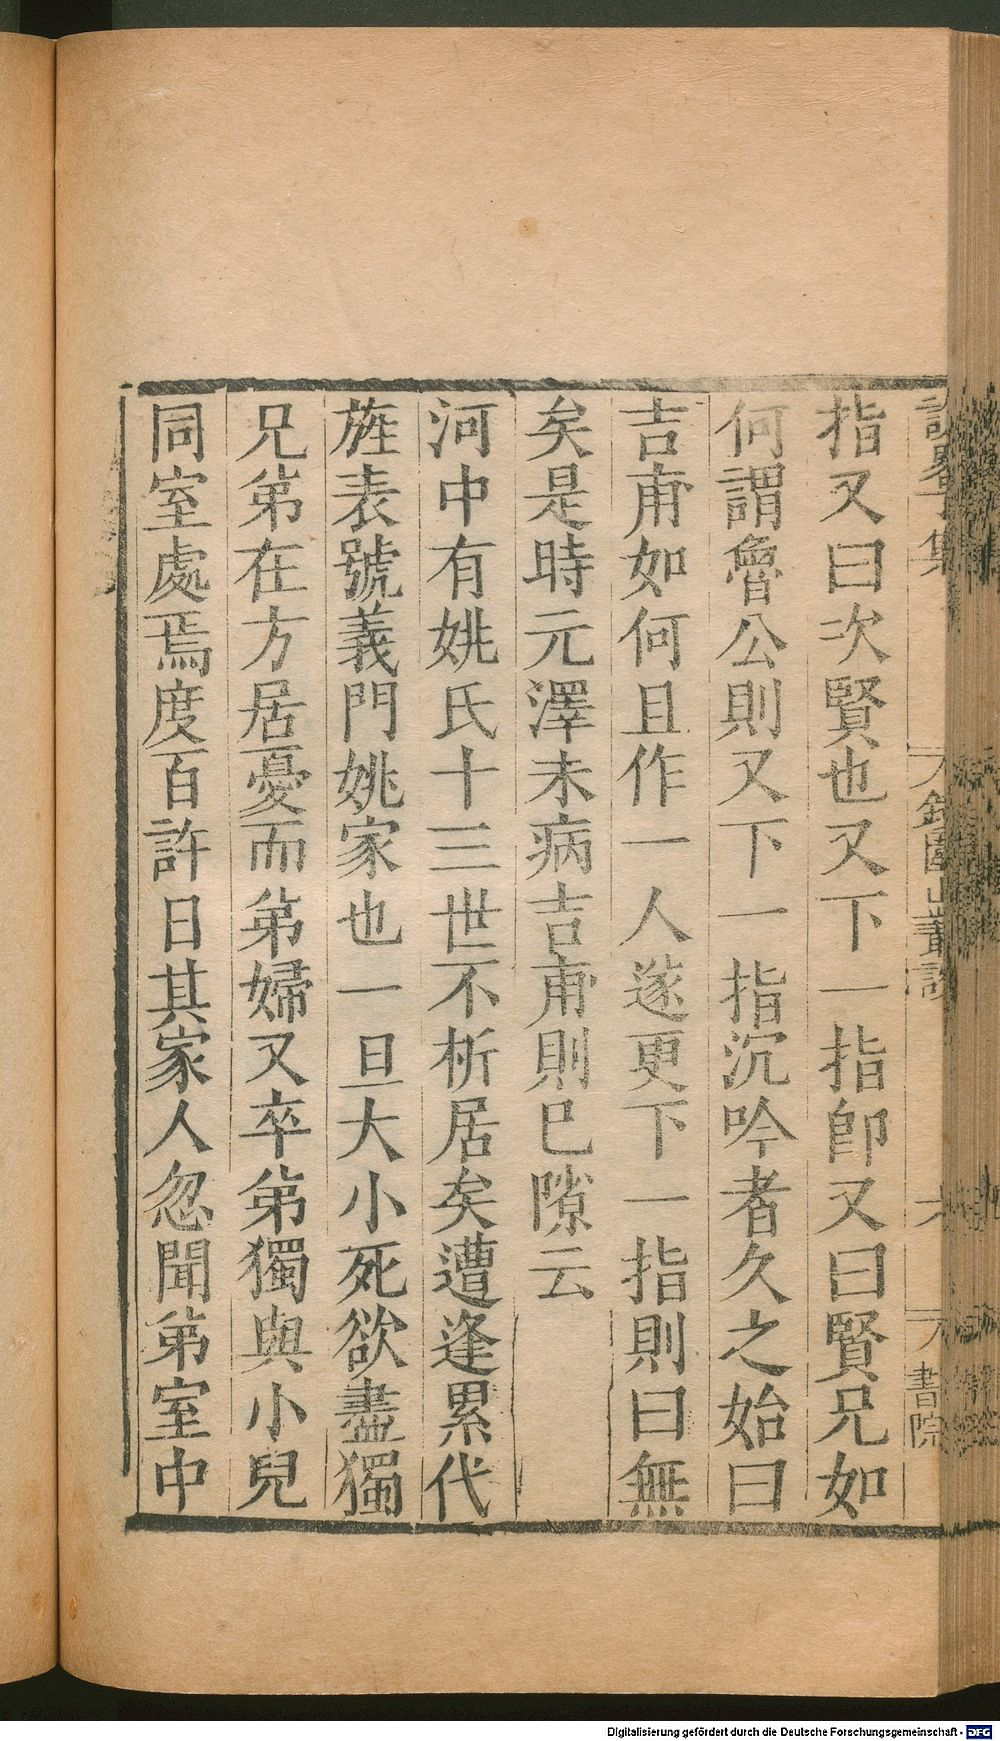 指又曰次賢也又下一指卽又曰賢兄如
何謂魯公則又下一指沉吟者久之始曰
吉甫如何且作一人遂更下一指則曰無
矣是時元澤未病吉甫則已隙云
河中有姚氏十三世不析居矣遭逢累代
旌表號義門姚家也一旦大小死欲盡獨
兄弟在方居憂而弟婦又卒弟獨與小兒
同室處焉度百許日其家人忽聞弟室中
鐵圍山叢談
書院
Digitalisierung gefördert durch die Deutsche Forschungsgemeinschaft - DFG